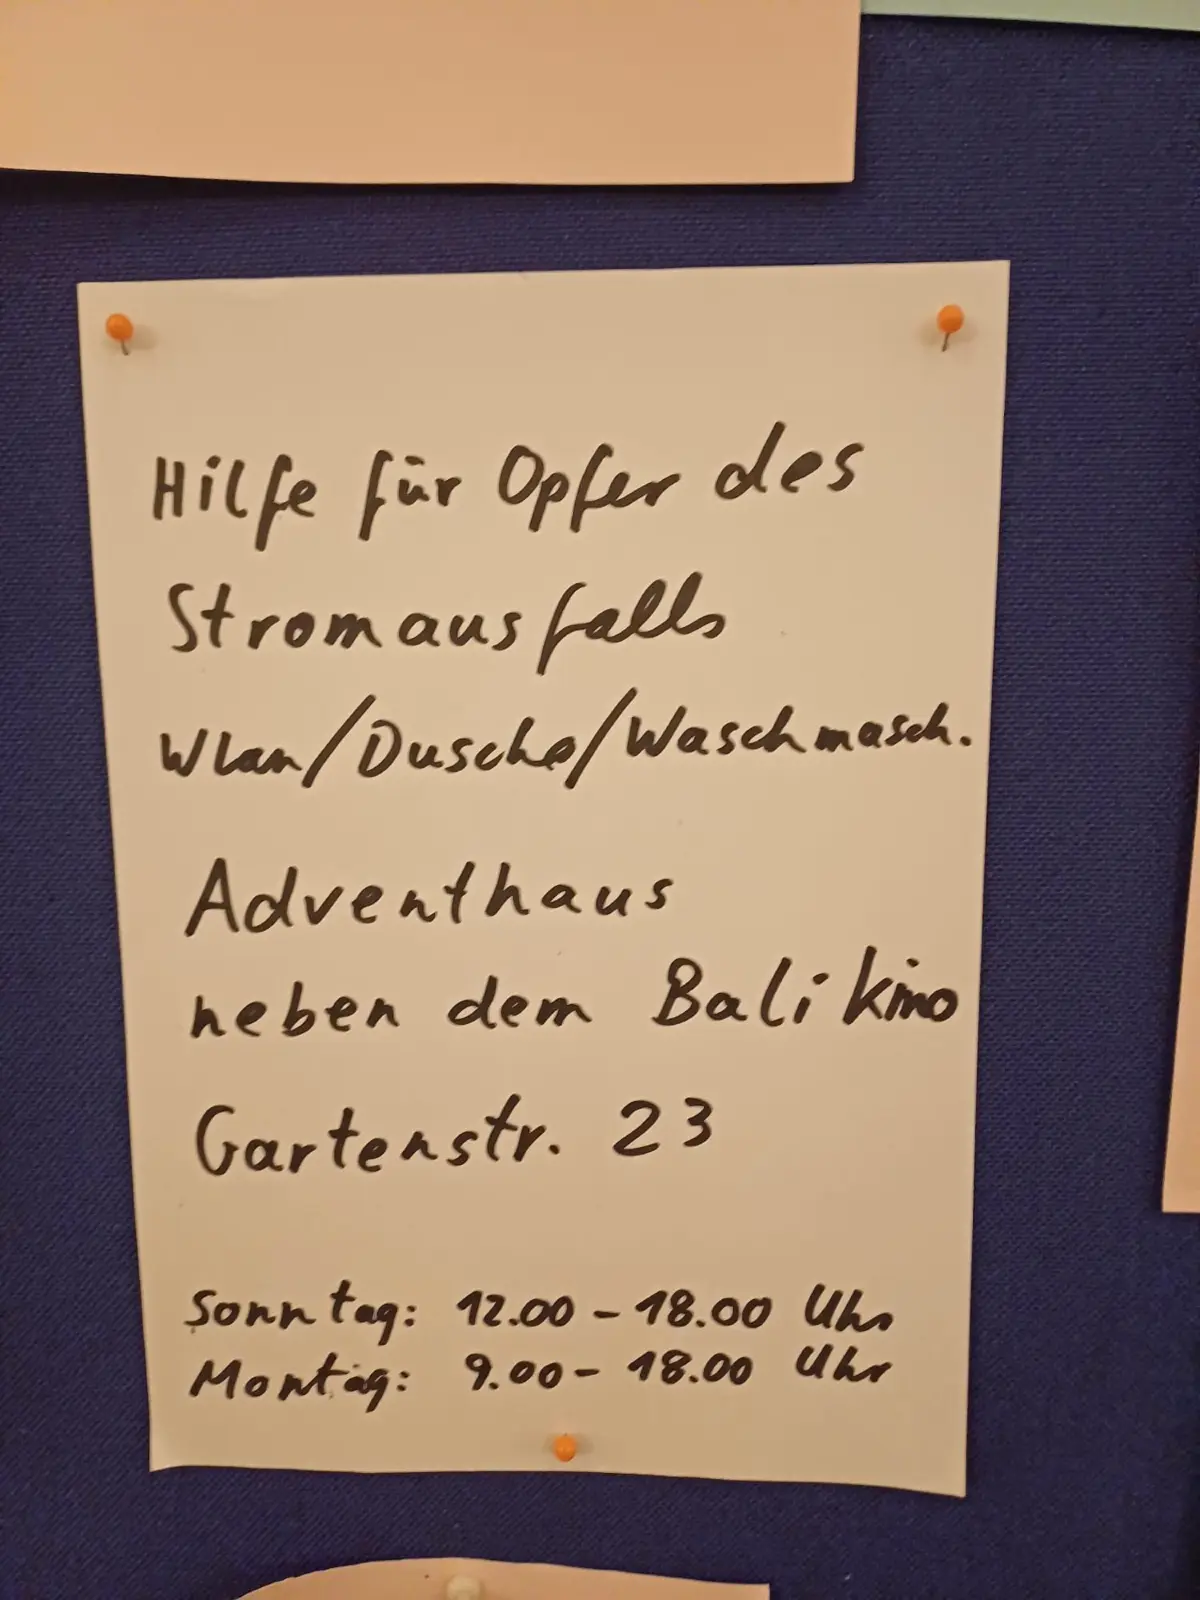 Hilfe für Opfer des
Stromausfalls
Wlan/Dusche/Waschmasch.
Adventhaus
neben dem Bali Kino
Gartenstr. 23
Sonntag: 12.00 - 18.00 Uhr
Montag: 9.00 - 18.00 Uhr